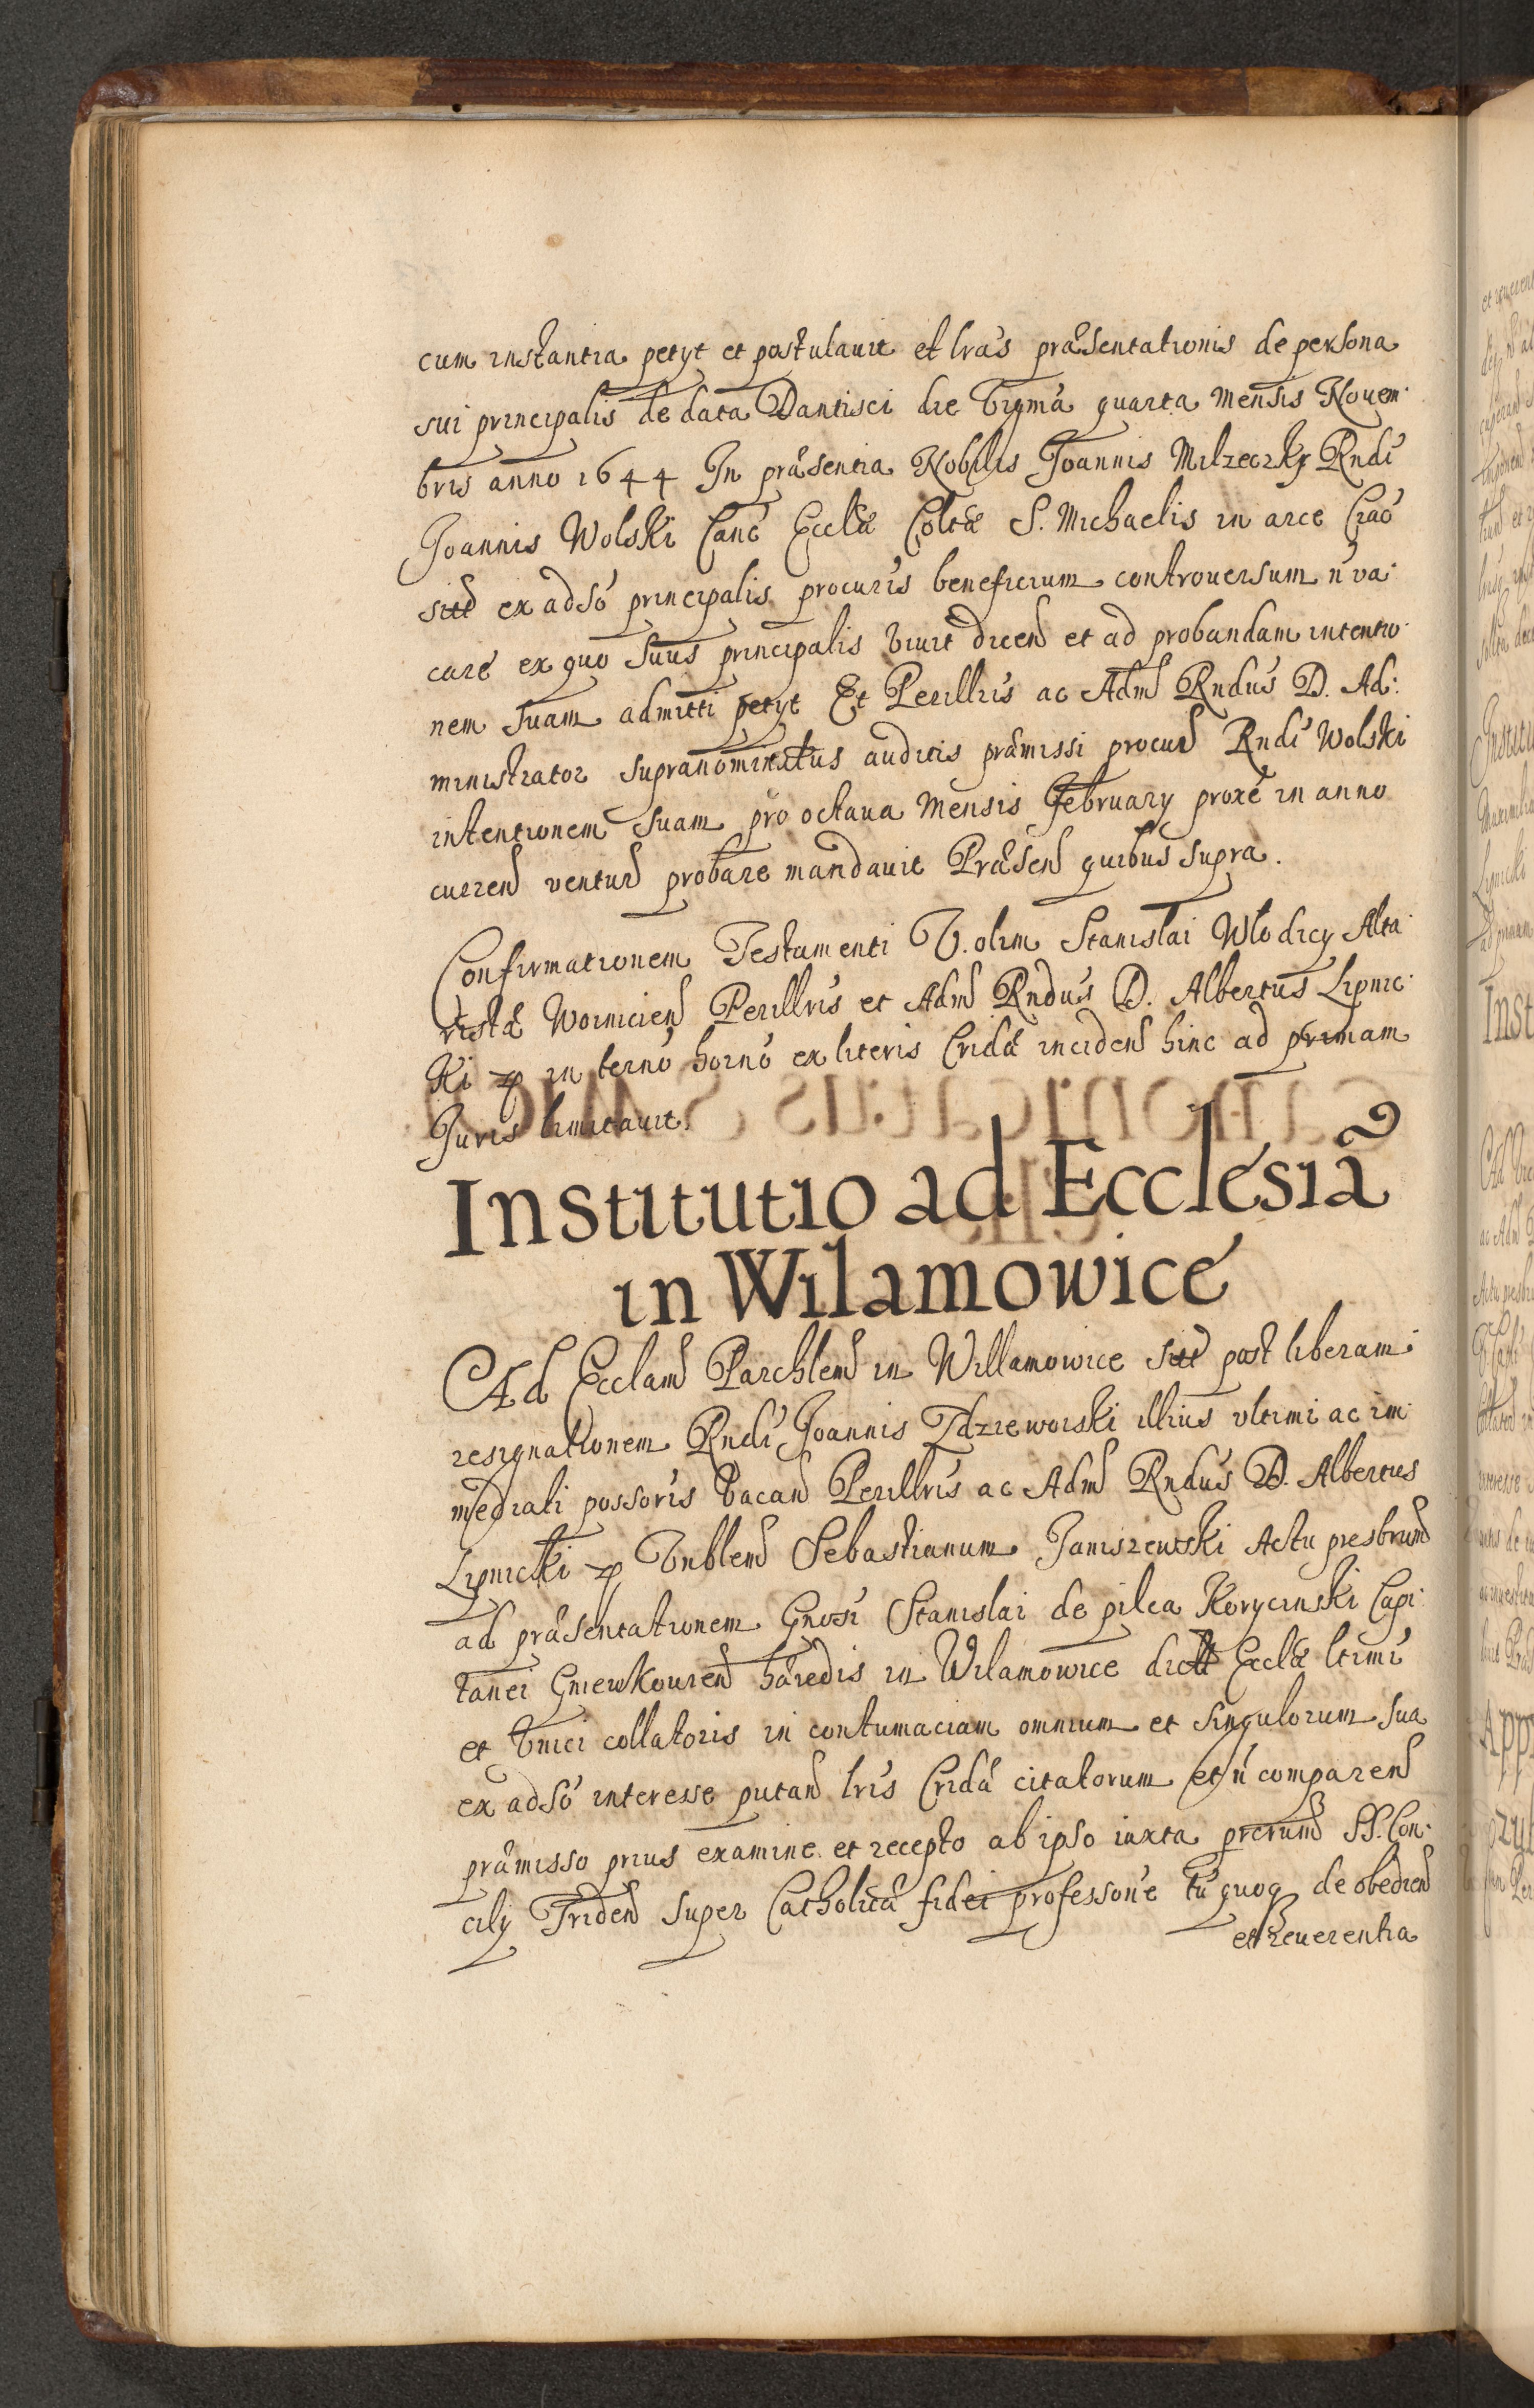 cum instantia petyt et postulauit et lras præsentationis de persona
sui principalis de data Dantisci die Vigma quarta mensis Nouem
bris anno 1644 In præsentia Nobilis Joannis Milzeczky Rndi
Joannis Wolski Canc Ecclæ Coltæ S. Michaelis in arce Crac
sitt ex adso principalis procuris beneficium controuersum n va
care ex quo suus principalis viuit dicen et ad probandam intentio
nem suam admitti petyt Et Perillris ac Adm Rndus D. Ad:
ministrator supranominatus auditis præmissi procur Rndi Wolski
intentionem suam pro octaua Mensis February proxe in anno
curren ventur probare mandauit Præsen quibus supra.
Confirmationem Testamenti V. olim Stanislai Wlodicy Alta
ristæ Woiniciens Perillris et Adm Rndus D. Albertus Lipnic
ki in terno horno ex literis Cridæ inciden hinc ad primam
Juris limitauit.
Institutio ad Ecclesiã
in Wilamowice
Ad Ecclam Parchlem in Willamowice sitt post liberam
resignationem Rndi Joannis Zdzieworski illius vltimi ac im
mediati possoris vacan Perillris ac Adm Rndus D. Albertus
Lipnicki Vnblem Sebastianum Janiszewski Actu presbrum
ad præsentationem Gnosi Stanislai de pilca Korycinski Capi
tanei Gniewkouien hæredis in Wilamowice dictt Ecclæ ltimi
et Vnici collatoris in contumaciam omnium et singulorum sua
ex adso interesse putan lris Cridæ citatorum et n comparen
præmisso prius examine et recepto ab ipso iuxta prerum SS. Con
cilij Triden super Catholicæ fidei professone tu quoq de obedien
et reuerentia